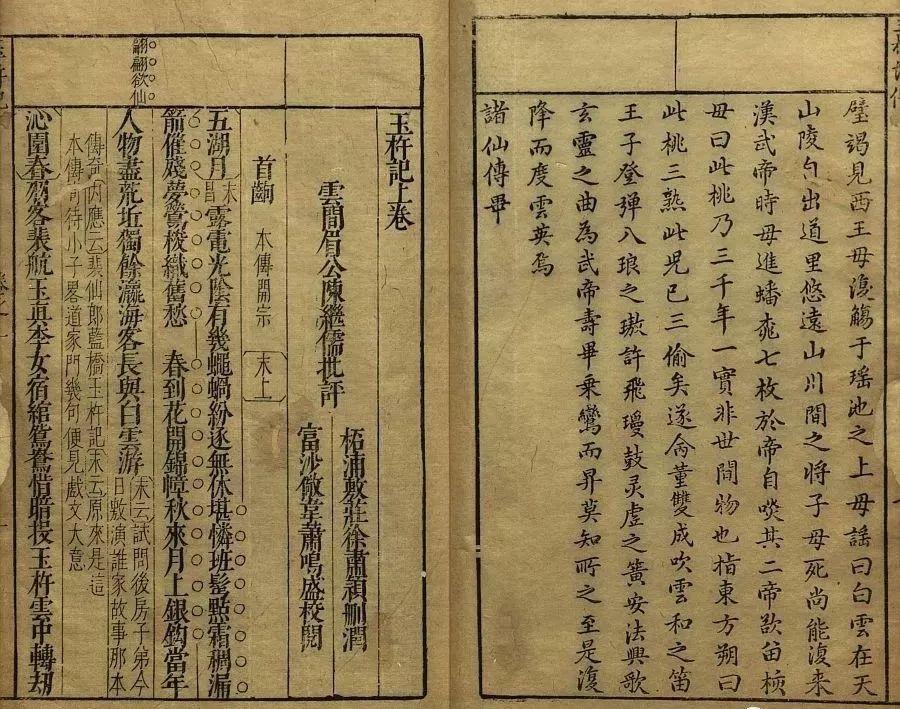 璧謁見西王母復觴于瑶池之上母謡曰白雲在天
山陵自出道里悠遠山川間之將子毋死尚能復来
漢武帝時母進蟠桃七枚於帝自啖其二帝欲留核
母曰此桃乃三千年一實非世間物也指東方朔曰
此桃三熟此児已三偷矣遂命董雙成吹雲和之笛
王子登弹八琅之璈許飛瓊鼓灵虚之簧安法興歌
玄靈之曲為武帝壽畢乗鸞而昇莫知所之至是復
降而度雲英焉
諸仙傳畢
玉杵記上卷
雲間眉公陳繼儒批評
柘浦敷莊徐肅頴刪潤
富沙儆韋蕭鳴盛校閱
首齣 本傳開宗 末上
五湖月 末唱 露電光陰有幾蠅蝸紛逐無休堪憐班髩點霜稠漏
箭催殘夢鶯梭織舊愁 春到花開錦幛秋來月上銀鈎當年
翩翩欲仙
人物盡荒坵獨餘瀛海客長與白雲游 末云試問後房子弟今
日敷演誰家故事那本
傳奇内應云裴仙郎藍橋玉杵記末云原來是這
本傳奇待小子畧道家門幾句便見戲文大意
沁園春 客裴航玉真李女宿綰鴛鴦情暗投玉杵雲中轉劫